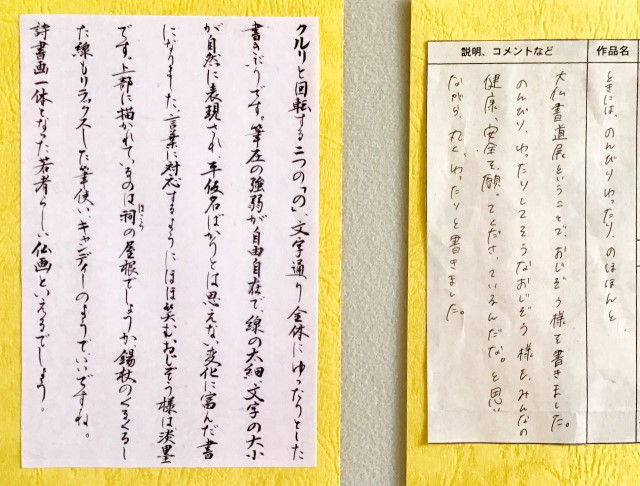 クルリと回転する二つの「の」、文字通り全体にゆったりとした
書きぶりです。筆圧の強弱が自由自在で、線の太細、文字の大小
が自然に表現され、平仮名ばかりとは思えない変化に富んだ書
になりました。言葉に対応するようにほほ笑むおじぞう様は淡墨
です。上部に描かれているのは祠の屋根でしょうか、錫杖のくるくるし
ほこら
た線もリラックスした筆使い、キャンディーのようでいいですね。
詩書画一体となった若者らしい仏画といえるでしょう。
作品名
ときには、のんびりゆったり、のほほんと
説明、コメントなど
大仏書道展ということで、おじぞう様を書きました。
のんびり、ゆったりしてそうなおじぞう様を、みんなの
健康、安全を、願ってくださっているんだな。と思い
ながら、丸く、ゆったりと書きました。